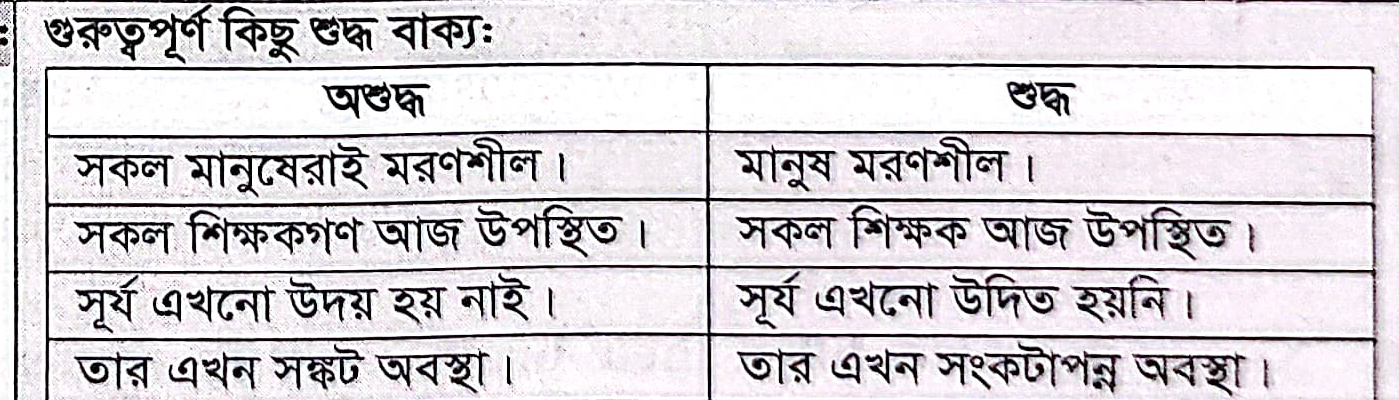 গুরুত্বপূর্ণ কিছু শুদ্ধ বাক্য:
অশুদ্ধ শুদ্ধ
সকল মানুষেরাই মরণশীল। মানুষ মরণশীল।
সকল শিক্ষকগণ আজ উপস্থিত। সকল শিক্ষক আজ উপস্থিত।
সূর্য এখনো উদয় হয় নাই। সূর্য এখনো উদিত হয়নি।
তার এখন সঙ্কট অবস্থা। তার এখন সংকটাপন্ন অবস্থা।